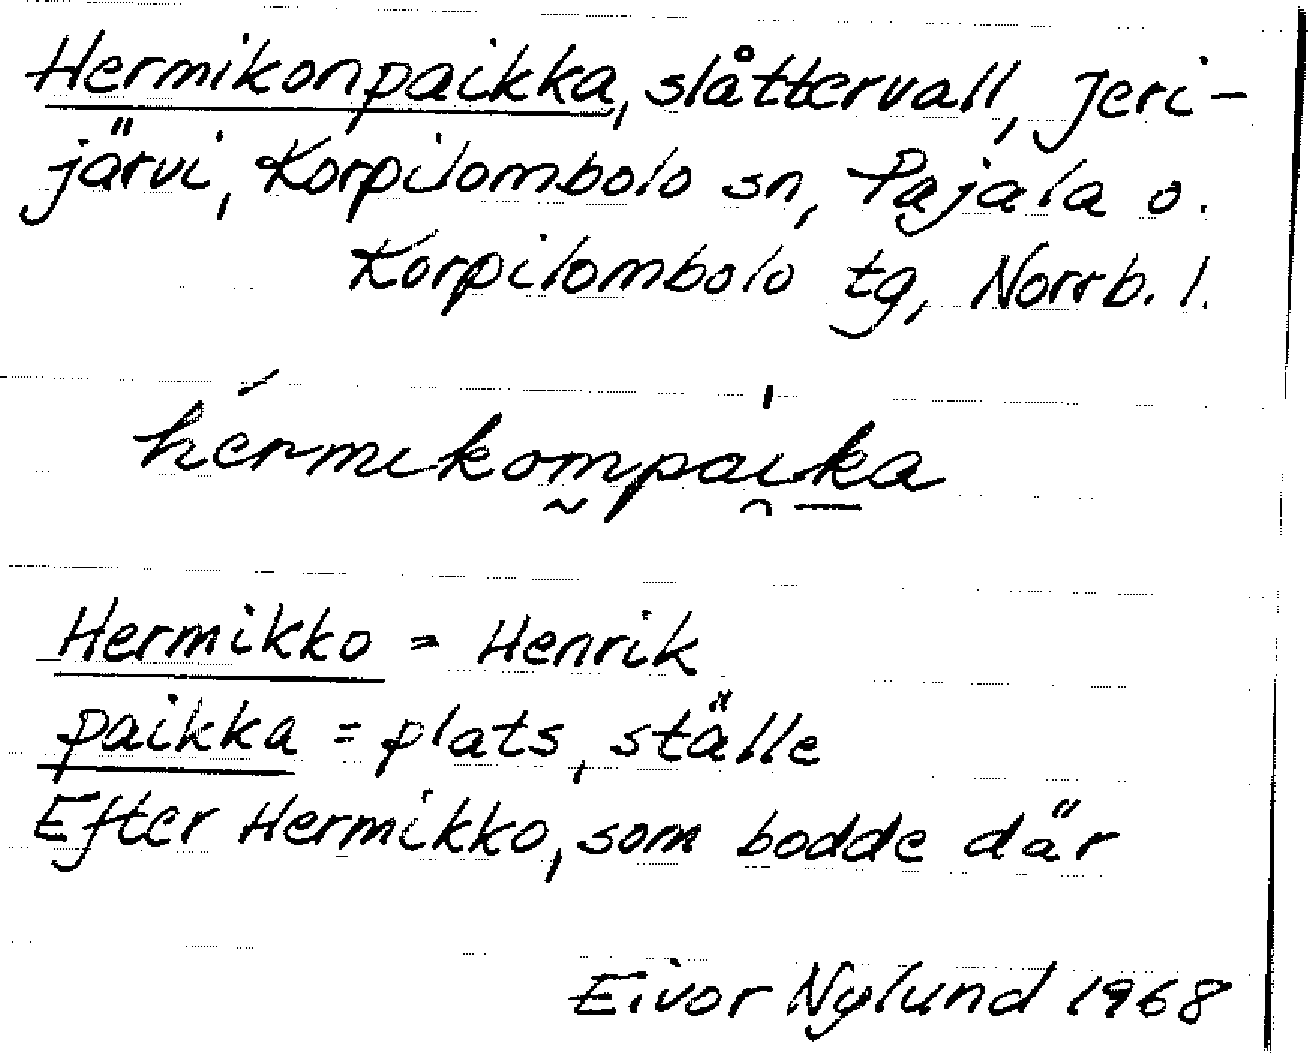 Hermikonpaikka, slåttervall, Jeri-
järvi, Korpilombolo sn, Pajala o.
Korpilombolo tg, Norrb. l.
hermikompaika
Hermikko = Henrik
paikka = plats, ställe
Efter Hermikko, som bodde där
Eivor Nylund 1968